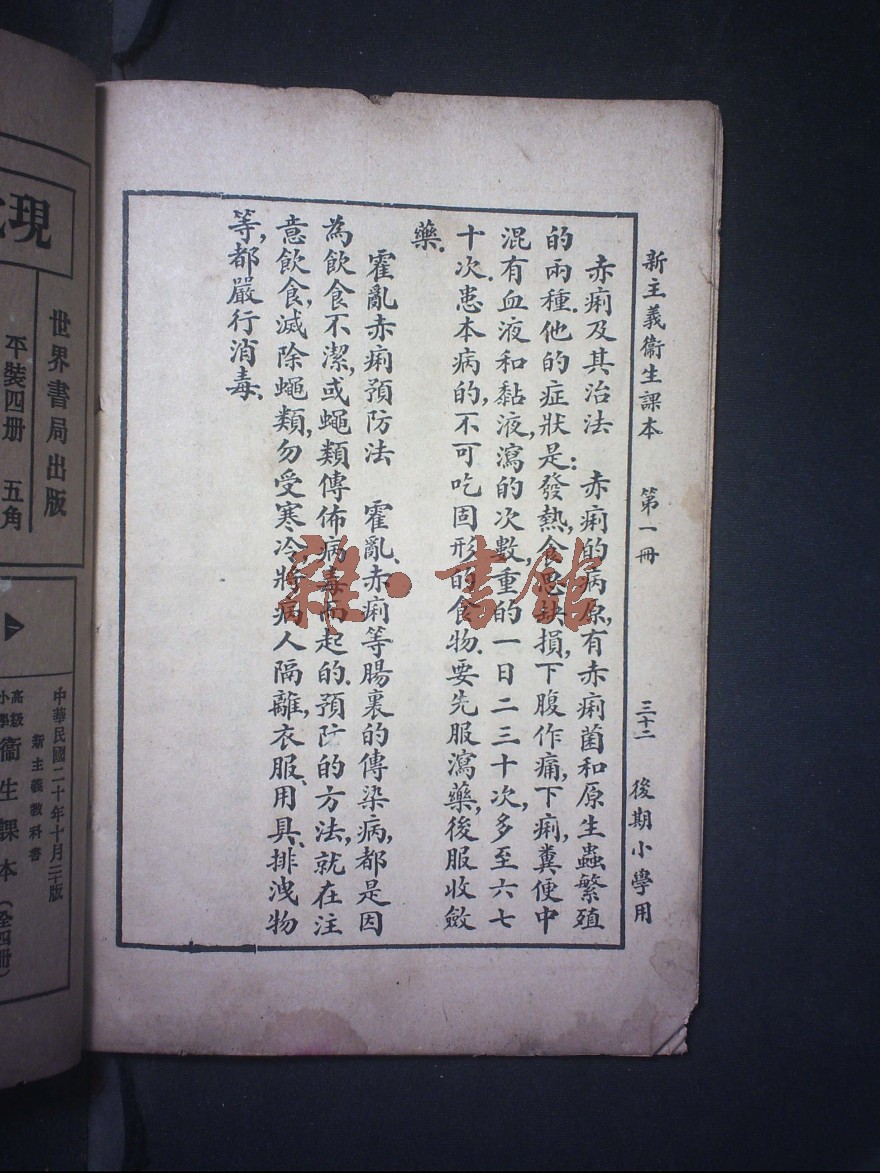 新主義衞生課本　第一冊　三十二　後期小學用
赤痢及其治法　赤痢的病原,有赤痢菌和原生蟲繁殖
的兩種.他的症狀是:發熱,食思缺損,下腹作痛,下痢,糞便中
混有血液和黏液,瀉的次數,重的一日二三十次,多至六七
十次.患本病的,不可吃固形的食物.要先服瀉藥,後服收斂
藥.
霍亂赤痢預防法　霍亂、赤痢等腸裏的傳染病,都是因
為飲食不潔,或蠅類傳佈病毒而起的.預防的方法,就在注
意飲食,滅除蠅類,勿受寒冷,將病人隔離,衣服、用具、排洩物
等,都嚴行消毒.
雜·書館
現
世界書局出版
平裝四册　五角
中華民國二十年十月二十版
新主義教科書
高級小學
衞生課本（全四册）